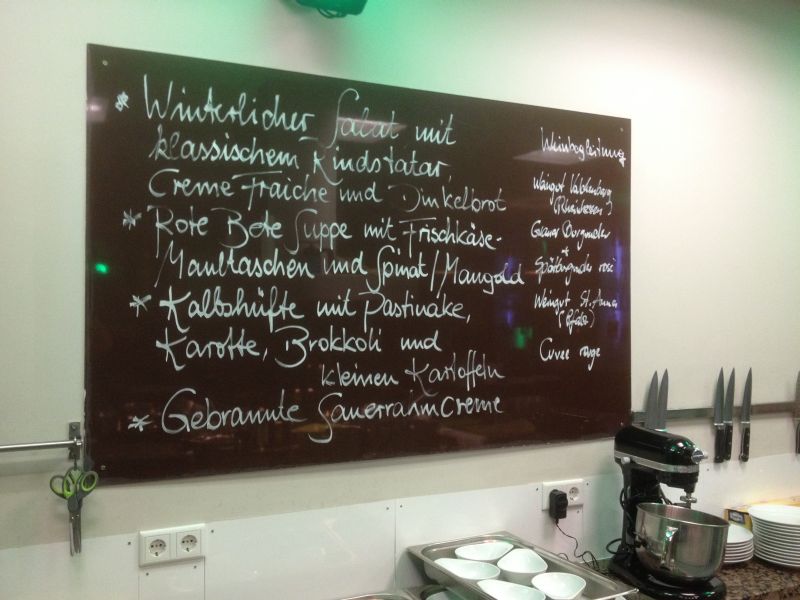 * Winterlicher Salat mit
klassischem Rindstatar,
Creme Fraiche und Dinkelbrot
* Rote Bete Suppe mit Frischkäse-
Maultaschen und Spinat/Mangold
* Kalbshüfte mit Pastinake,
Karotte, Brokkoli und
kleinen Kartoffeln
* Gebrannte Sauerrahmcreme
Weinbegleitung
Weingut
(Rheinhessen)
Grauer Burgunder
+
Spätburgunder rosé
Weingut St. Annas
(Pfalz)
Cuvee rouge